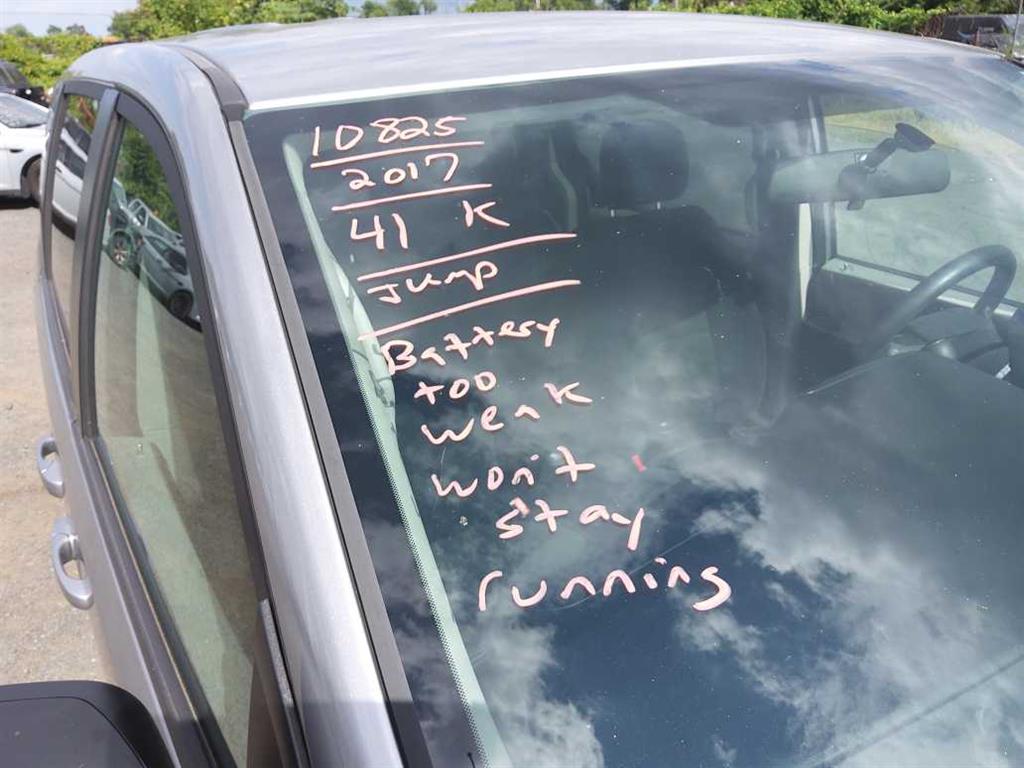 10825
2017
41 K
Jump
Battery
too
weak
won't
stay
running